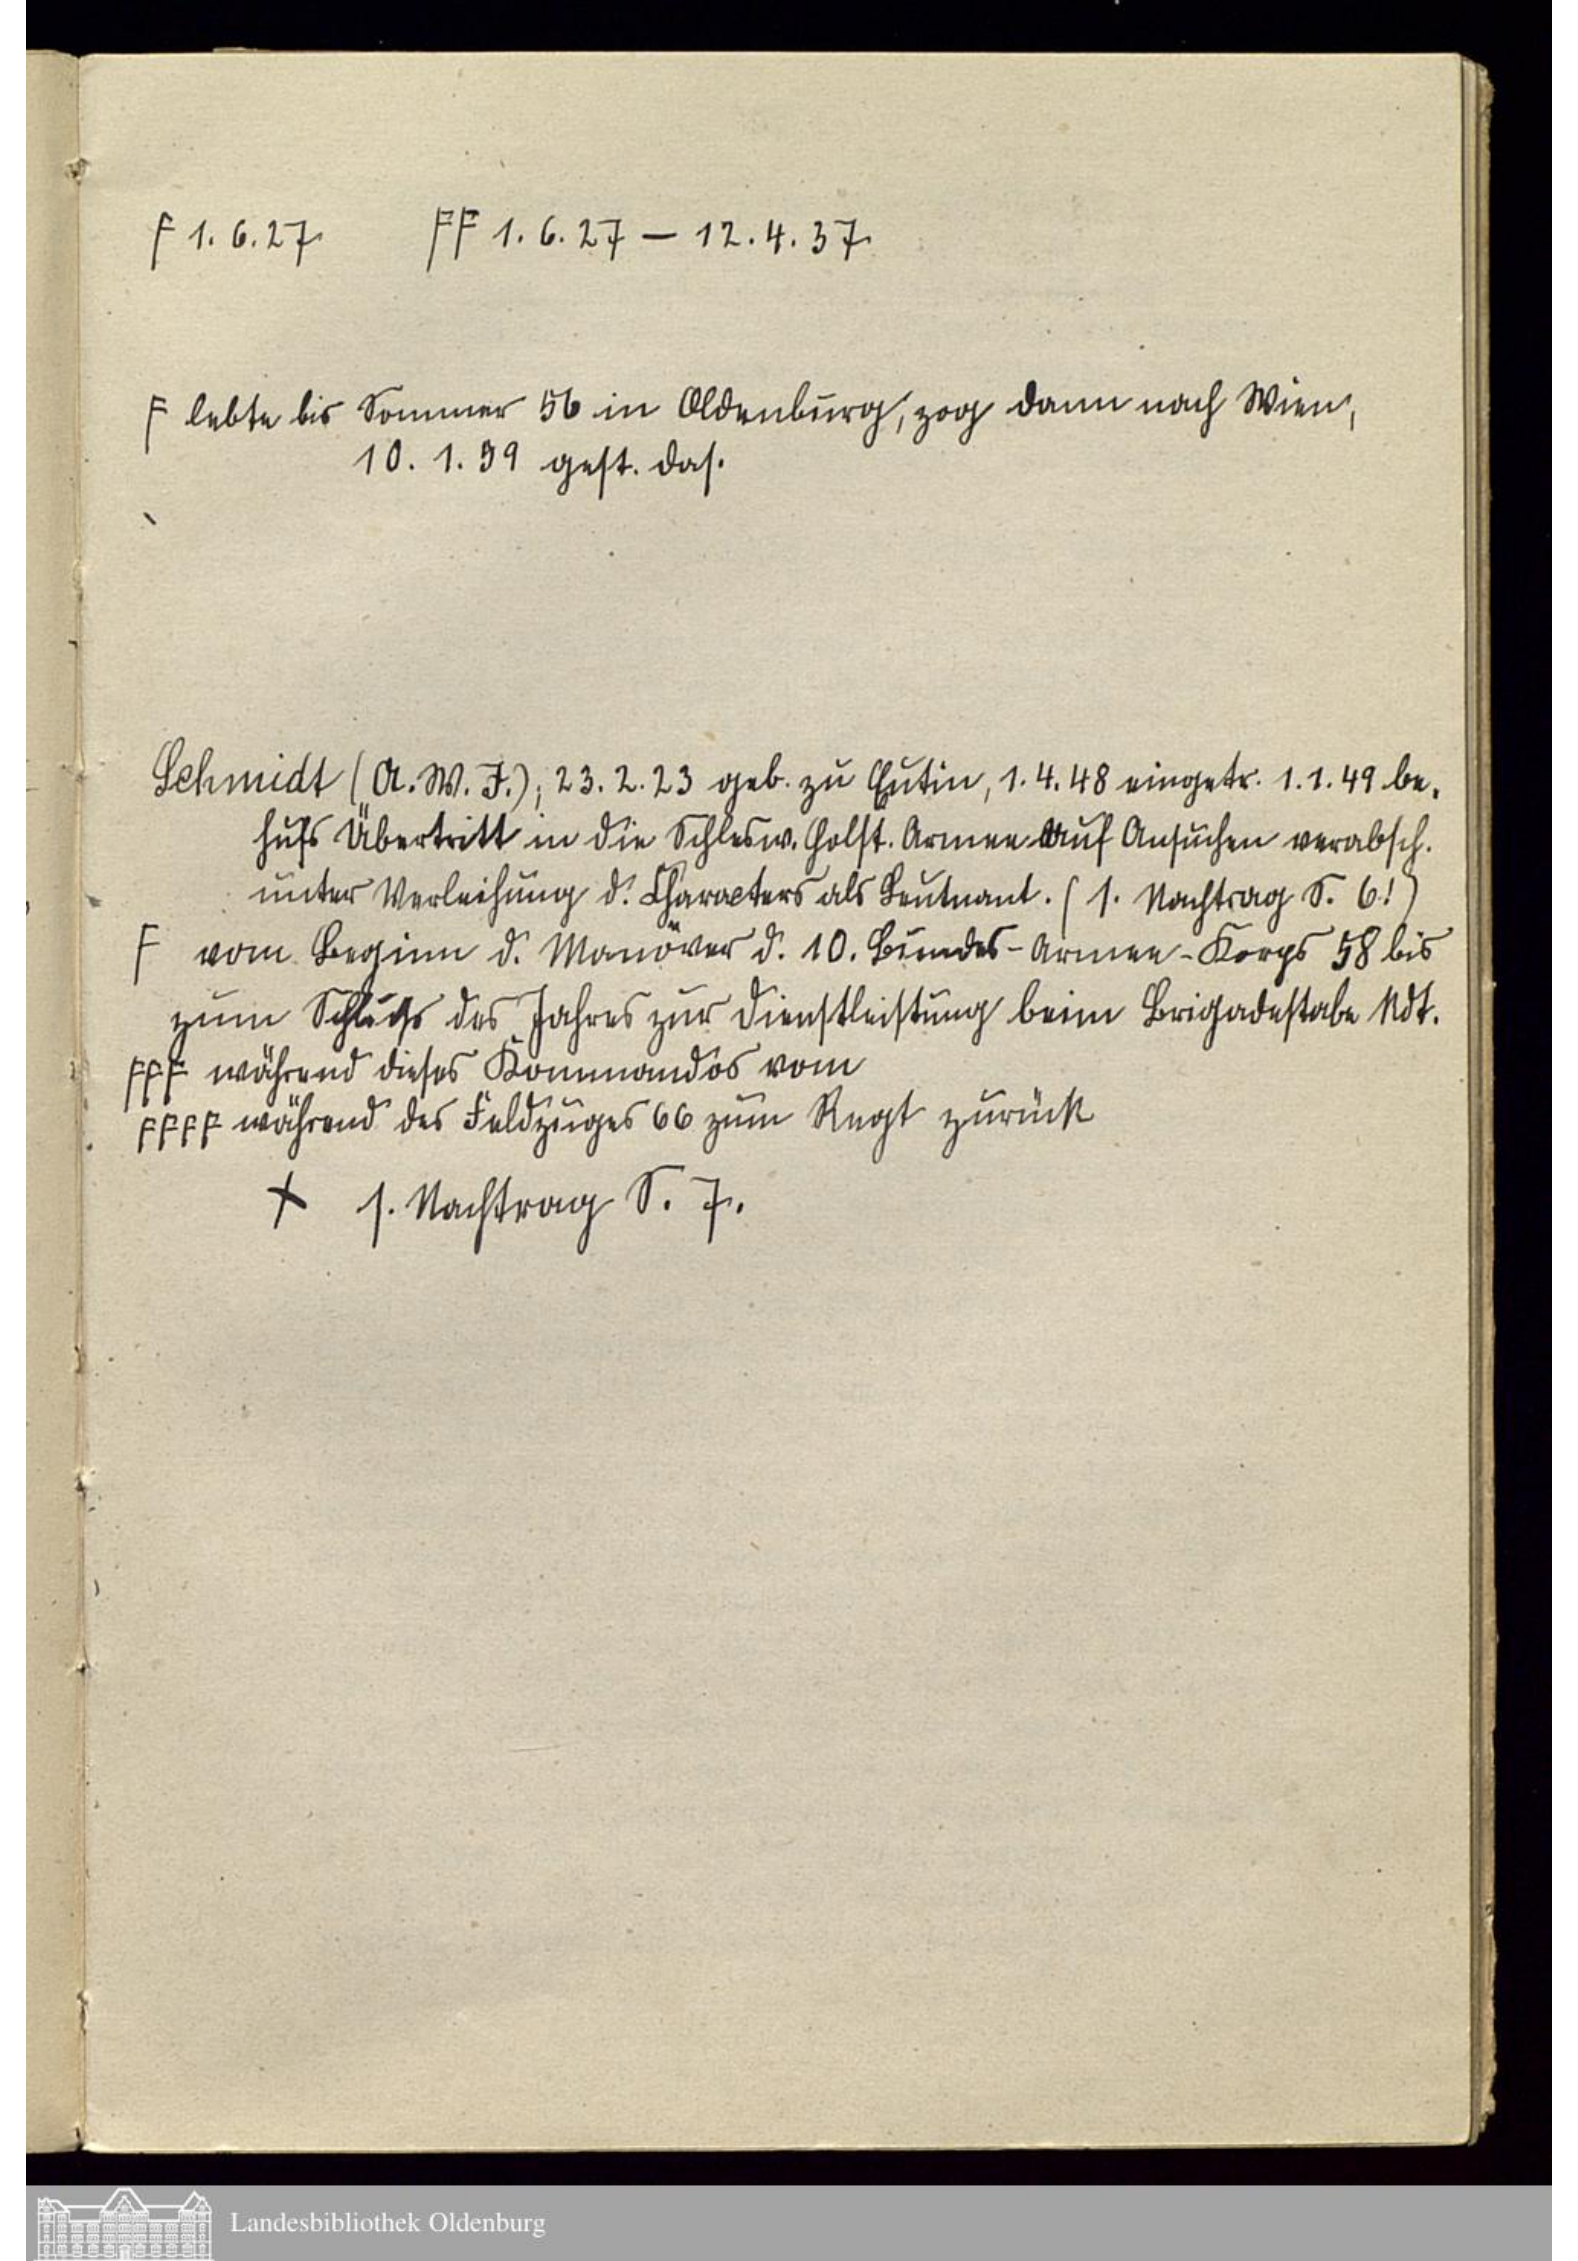 F 1. 6. 27. FF 1. 6. 27 – 12. 4. 37.
F lebte bis Sommer 56 in Oldenburg, zog dann nach Wien,
10. 1. 59 gest. das.
Schmidt (A. W. F.); 23. 2. 23 geb. zu Eutin, 1. 4. 48 eingetr. 1. 1. 49 be-
hufs Übertritt in die Schlesw. Holst. Armee auf Ansuchen verabsch.
unter Verleihung d. Characters als Leutnant. (s. Nachtrag S. 6!)
F vom Beginn d. Manöver d. 10. Bundes-Armee-Korps 58 bis
zum Schluß des Jahres zur Dienstleistung beim Brigadestabe kdt.
FFF während dieses Kommandos vom
FFFF während des Feldzuges 66 zum Regt zurück
+ s. Nachtrag S. 7.
Landesbibliothek Oldenburg